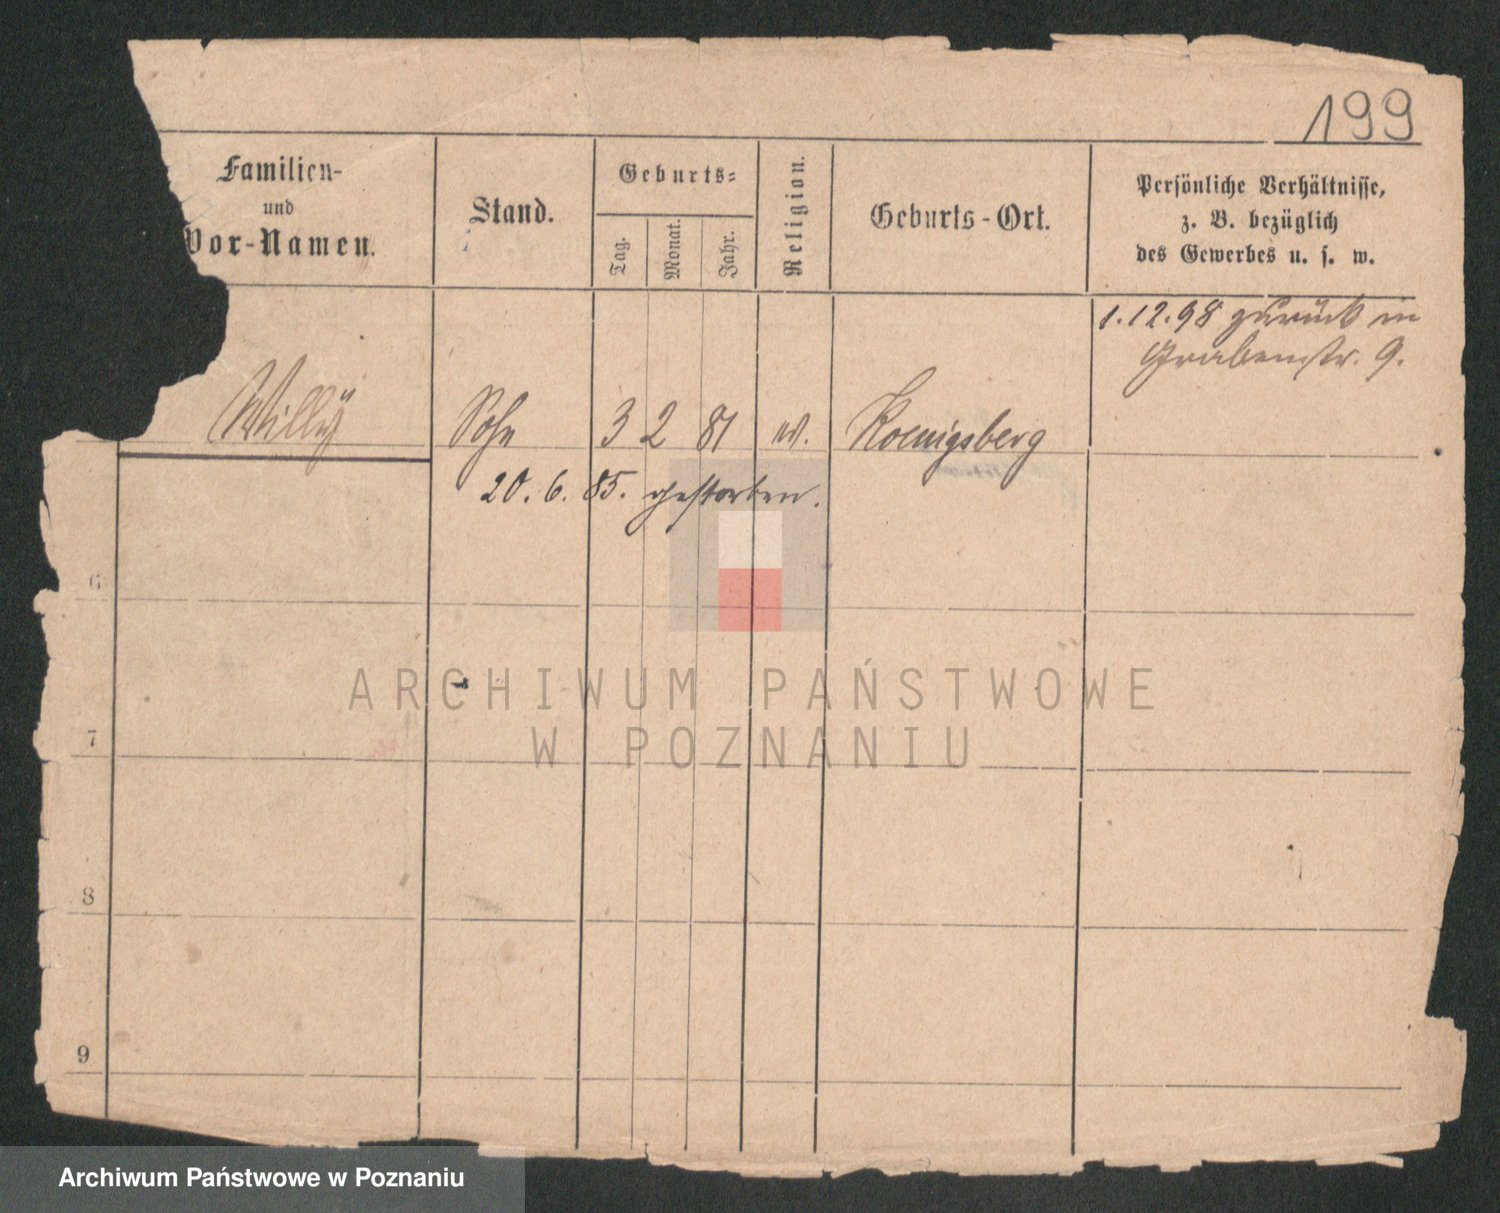 199
Familien-
und
Vor-Namen.
Stand.
Geburts-
Tag.
Monat.
Jahr.
Religion.
Geburts-Ort.
Persönliche Verhältnisse,
z. B. bezüglich
des Gewerbes u. s. w.
1.12.98 zurück in
Grabenstr. 9.
Willÿ Sohn 3 2 81 Koenigsberg
20. 6. 85. gestorben.
6
7
8
9
ARCHIWUM PAŃSTWOWE
W POZNANIU
Archiwum Państwowe w Poznaniu